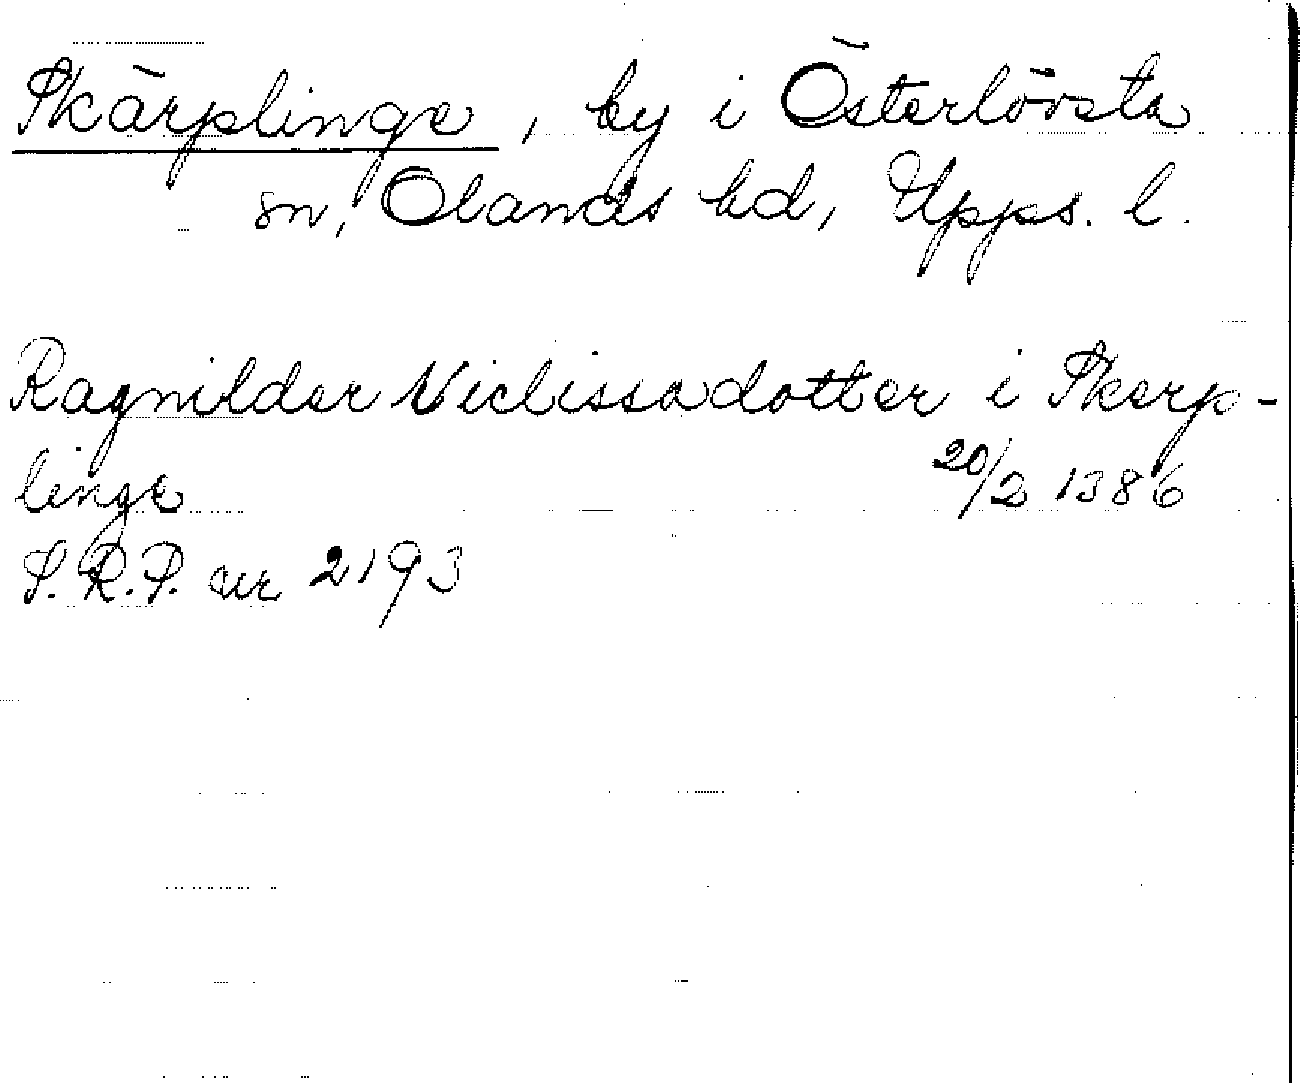 Skärplinge, by i Österlövsta
sn, Olands hd, Upps. l.
Ragnilder Niclissadotter i Skerp-
linge 20/2 1386
S.R.P. nr 2193